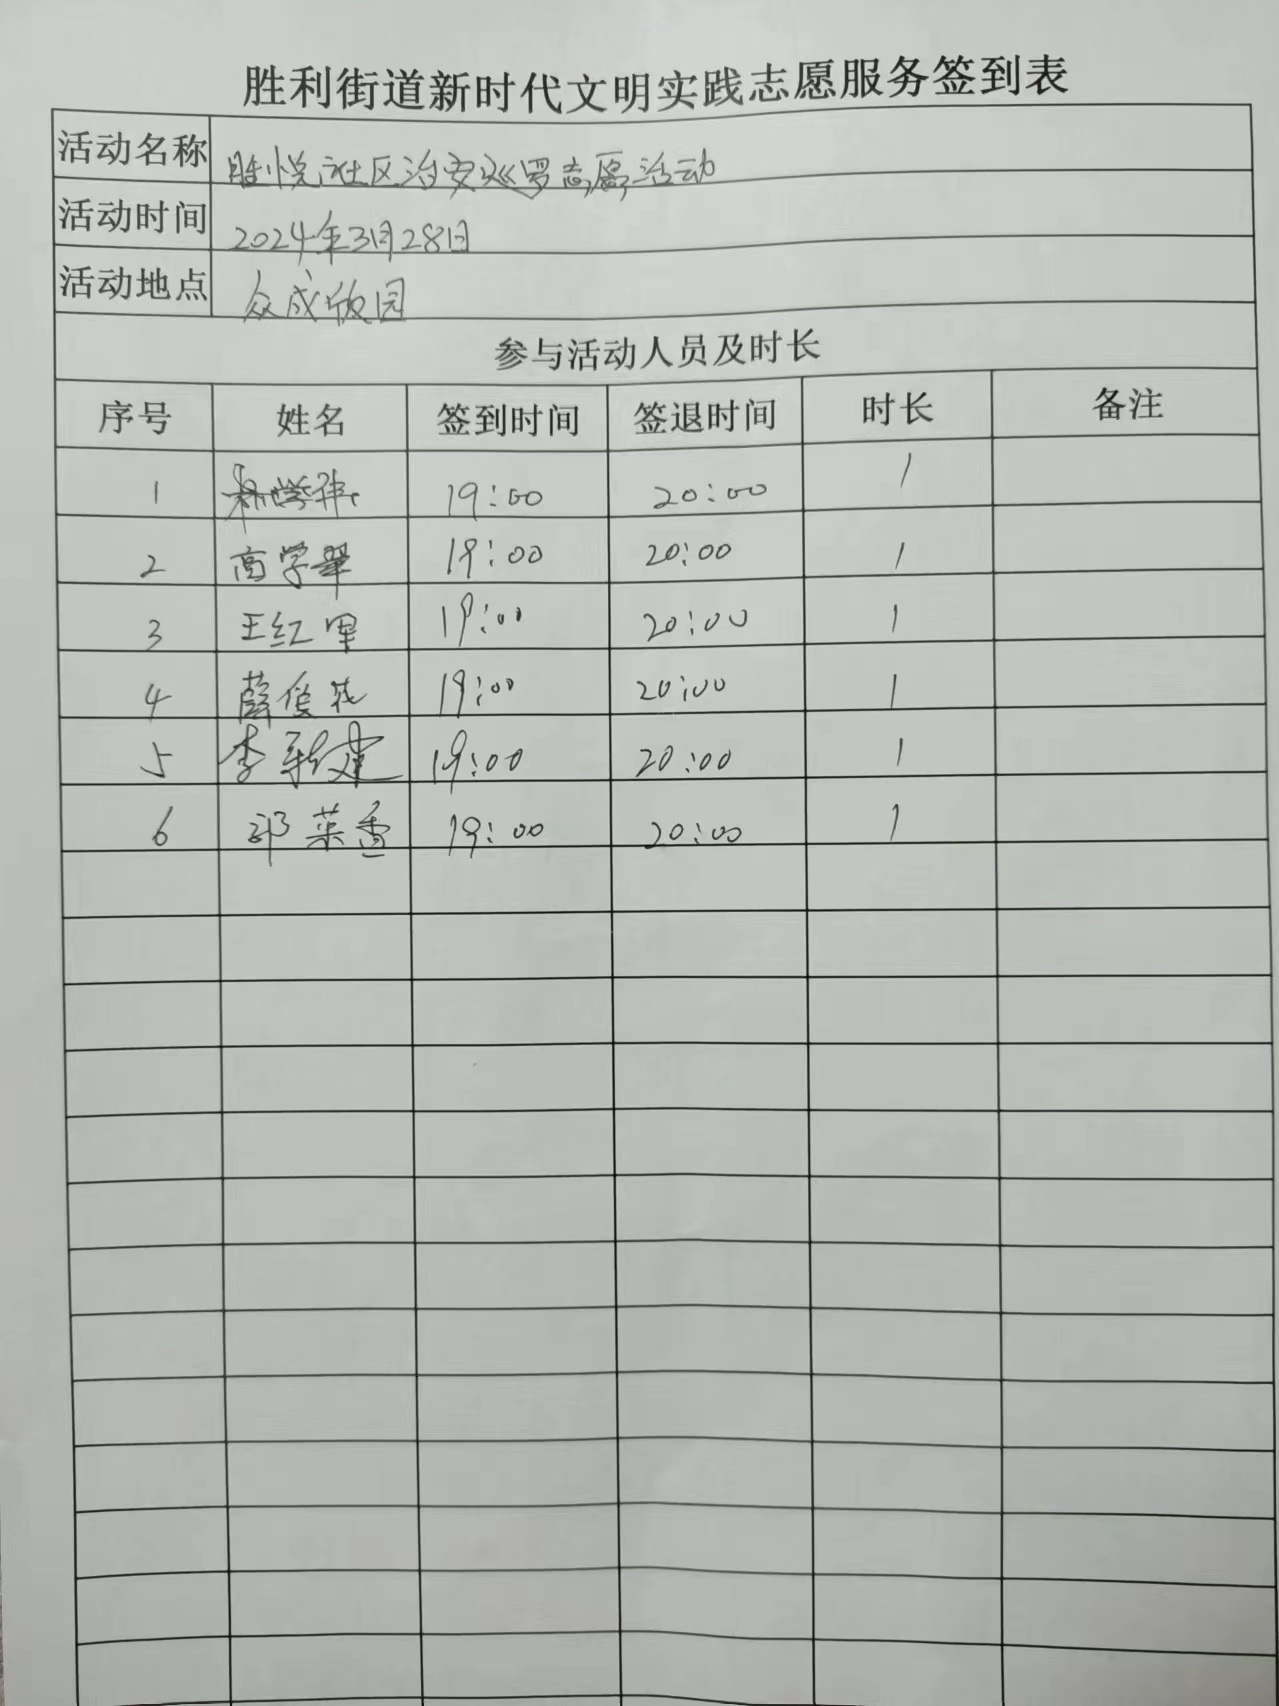 胜利街道新时代文明实践志愿服务签到表
活动名称 胜悦社区治安巡罗志愿活动
活动时间 2024年3月28日
活动地点 众成欣园
参与活动人员及时长
序号 姓名 签到时间 签退时间 时长 备注
1 19:00 20:00 1
2 商学翠 19:00 20:00 1
3 王红军 19:00 20:00 1
4 薛俊花 19:00 20:00 1
5 李新建 19:00 20:00 1
6 邱菜香 19:00 20:00 1